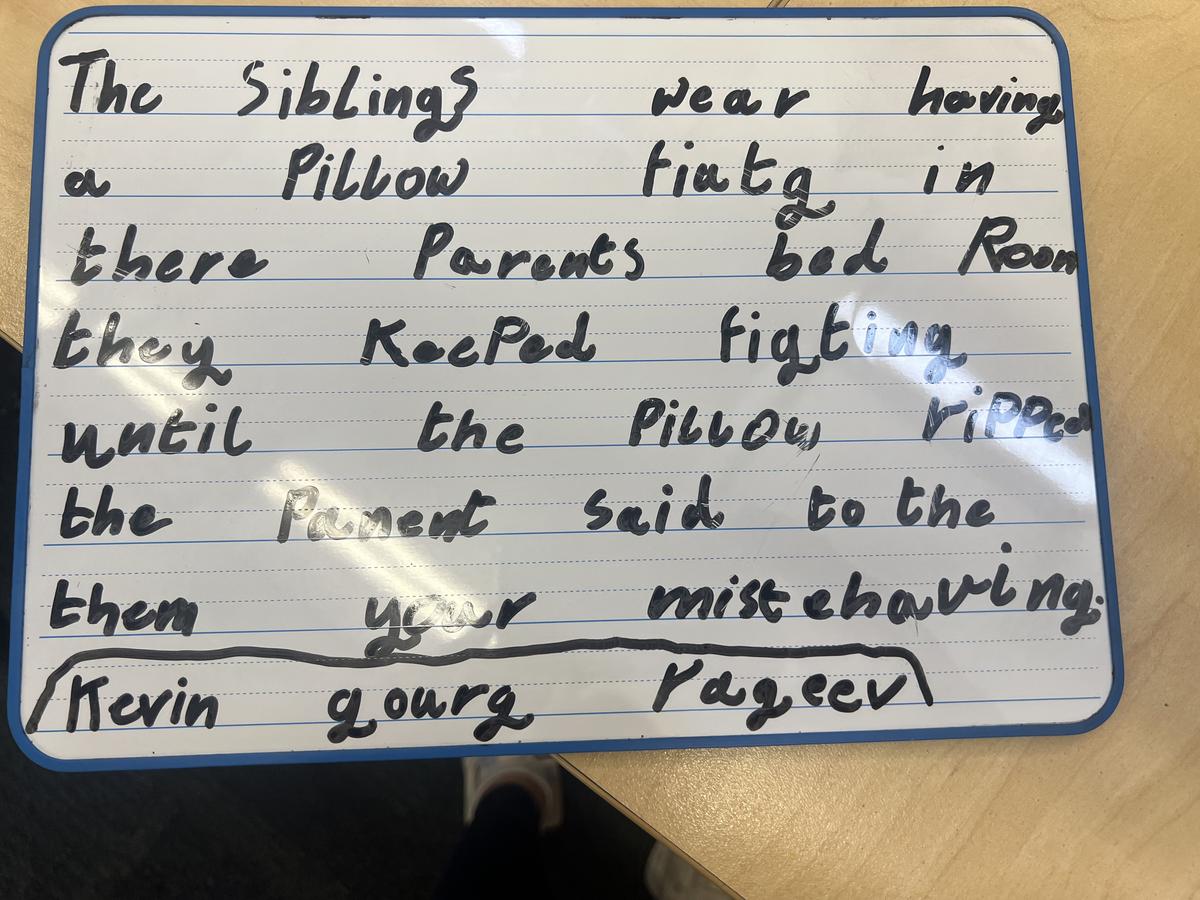 The Siblings wear having
a Pillow fiutg in
there Parents bed Room
they KeePed figting
until the Pillow riPPed
the Panent said to the
them your mistehaving.
Kevin gourg rageev